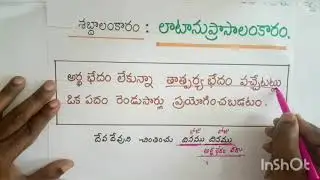 శబ్దాలంకారం : లాటానుప్రాసాలంకారం.
అర్థ భేదం లేకున్నా తాత్పర్య భేదం వచ్చేటట్లు
ఒక పదం రెండుసార్లు ప్రయోగించబడటం.
దేవ దేవుని చింతించు దినము దినము
అర్థ భేదం లేదు
InShOt